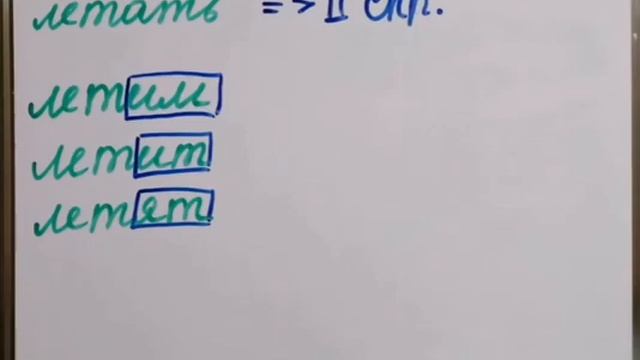 летать => II спр.
летим
летит
летят